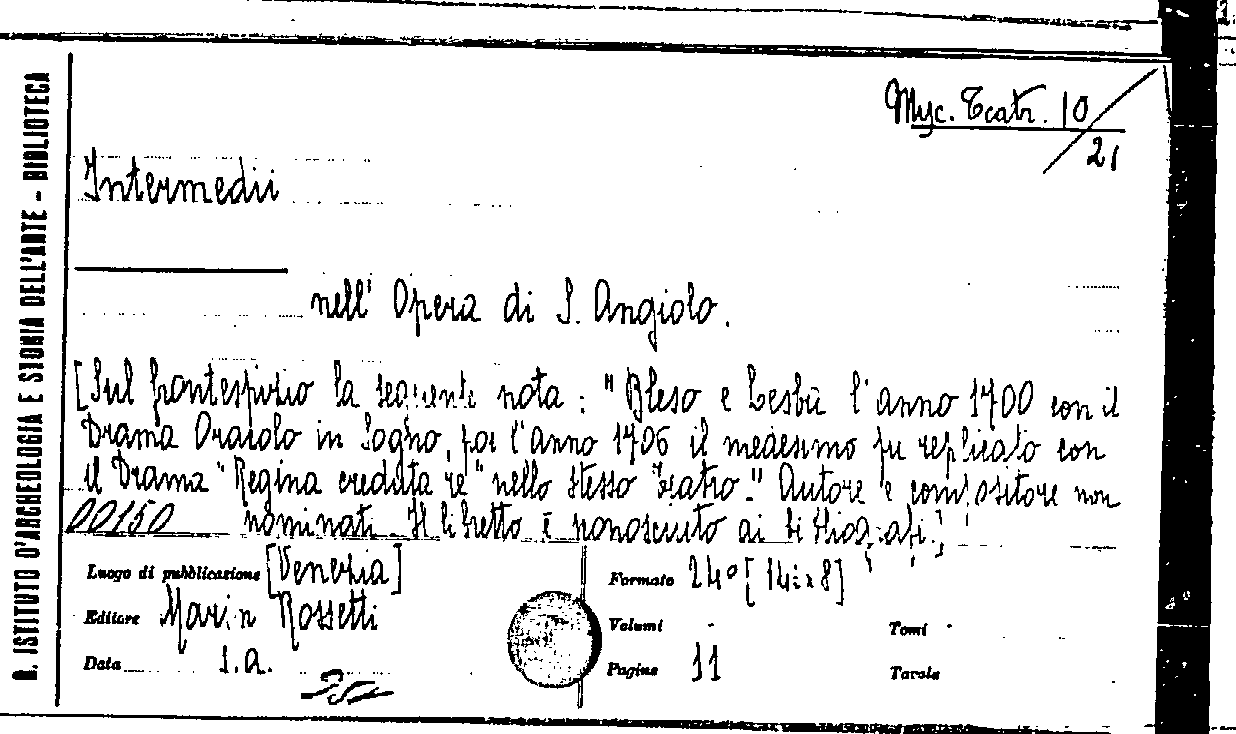 Mysc. Teatr. 10/21
R. ISTITUTO D'ARCHEOLOGIA E STORIA DELL'ARTE - BIBLIOTECA
Intermedii
nell' Opera di S. Angiolo.
[Sul frontespizio la seguente nota : "Bleso e Lesba l'anno 1700 con il
Drama Oraiolo in Sogno, poi l'anno 1706 il medesimo fu replicato con
il Drama "Regina creduta re" nello stesso Teatro." Autore e compositore non
00150 nominati. Il libretto è sconosciuto ai bibliografi.]
Luogo di pubblicazione [Venezia]
Editore Marin Rossetti
Data s.a.
Formato 24° [14i x 8]
Volumi
Tomi
Pagine 11
Tavole